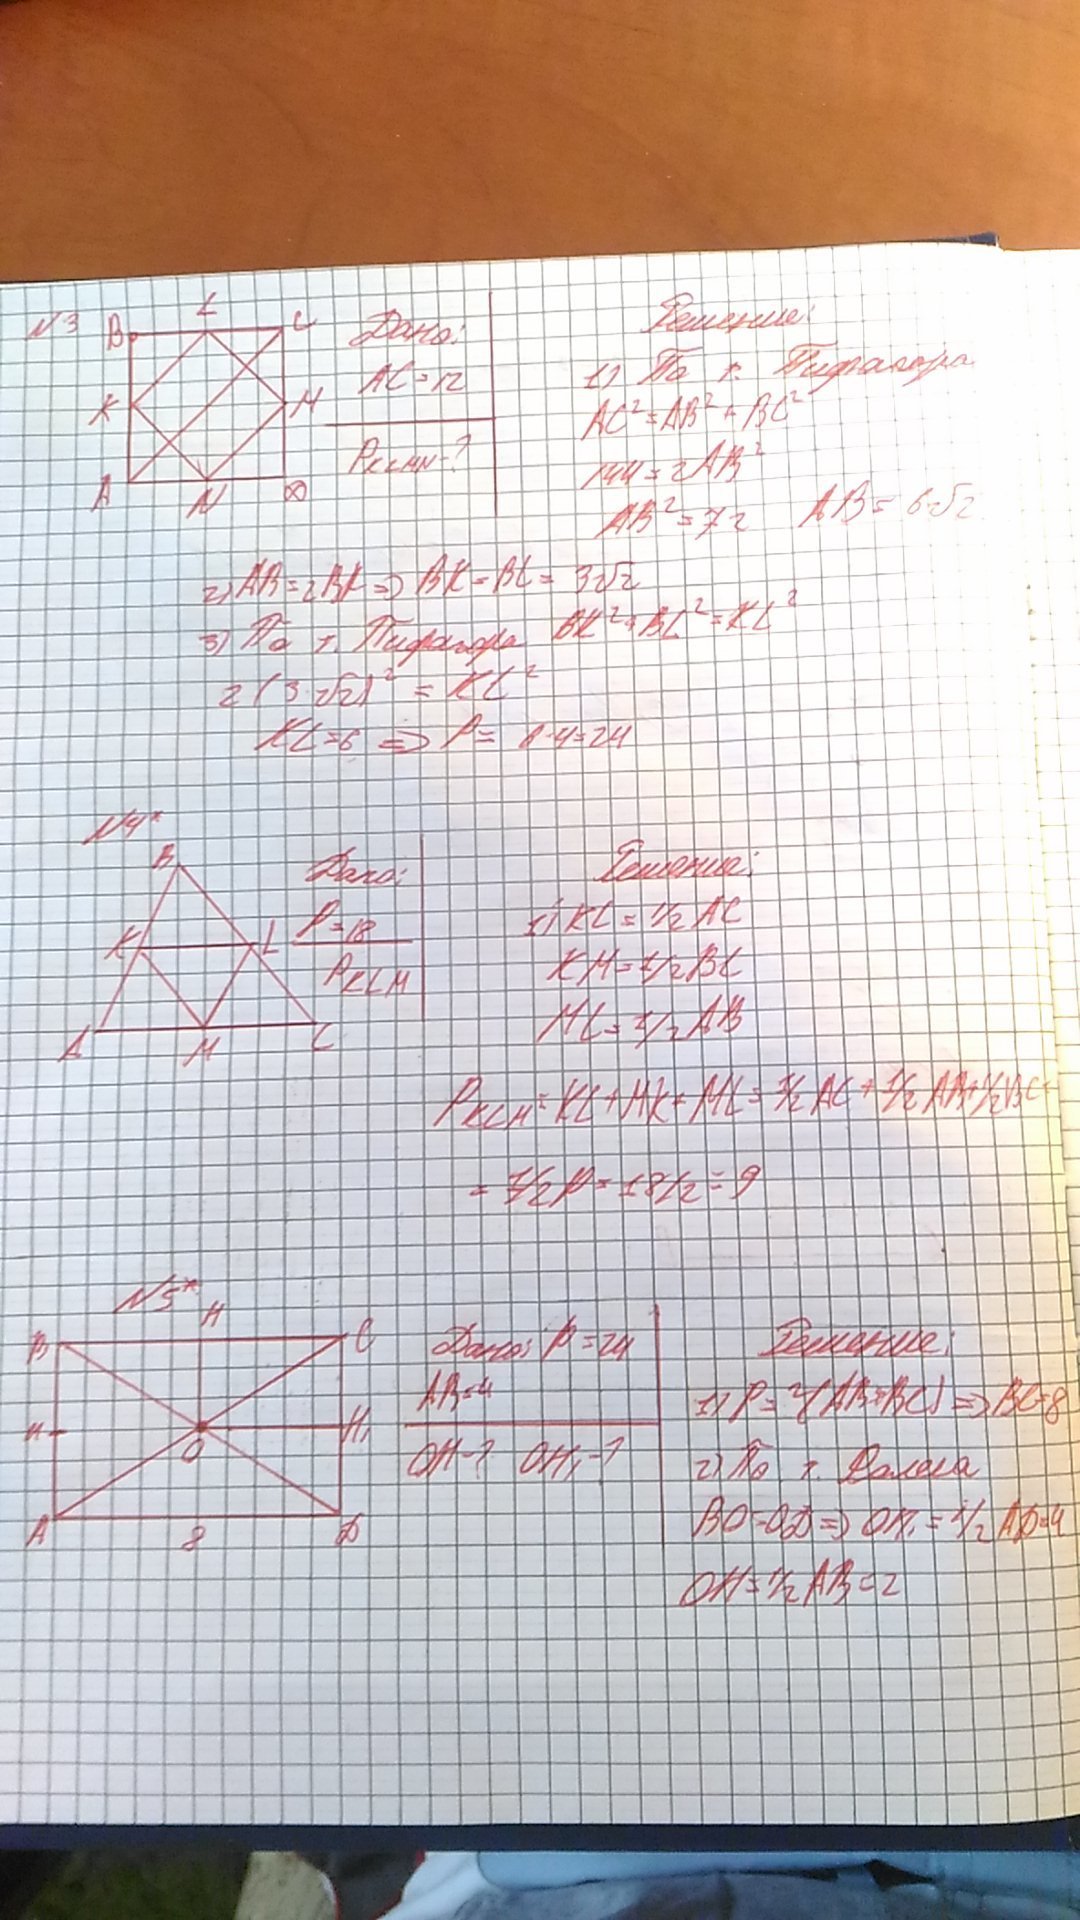 N3
B L C
K M
A N D
Дано:
AC=12
P_KLMN-?
Решение:
1) По т. Пифагора
AC²=AB²+BC²
144=2AB²
AB²=72 AB=6√2
2) AB=2BK=>BK=BL=3√2
3) По т. Пифагора BK²+BL²=KL²
2(3√2)²=KL²
KL=6 => P= 6·4=24
N4*
B
K L
A M C
Дано:
P=18
P_KLM
Решение:
1) KL=1/2 AC
KM=1/2 BC
ML=1/2 AB
P_KLM=KL+MK+ML=1/2 AC+1/2 AB+1/2 BC=
=1/2P=18/2=9
N5*
B H C
H O H₁
A 8 D
Дано: P=24
AB=4
OH-? OH₁-?
Решение:
1) P=2(AB+BC)=>BC=8
2) По т. Фалеса
BO=OD=>OH₁=1/2 AD=4
OH=1/2 AB=2